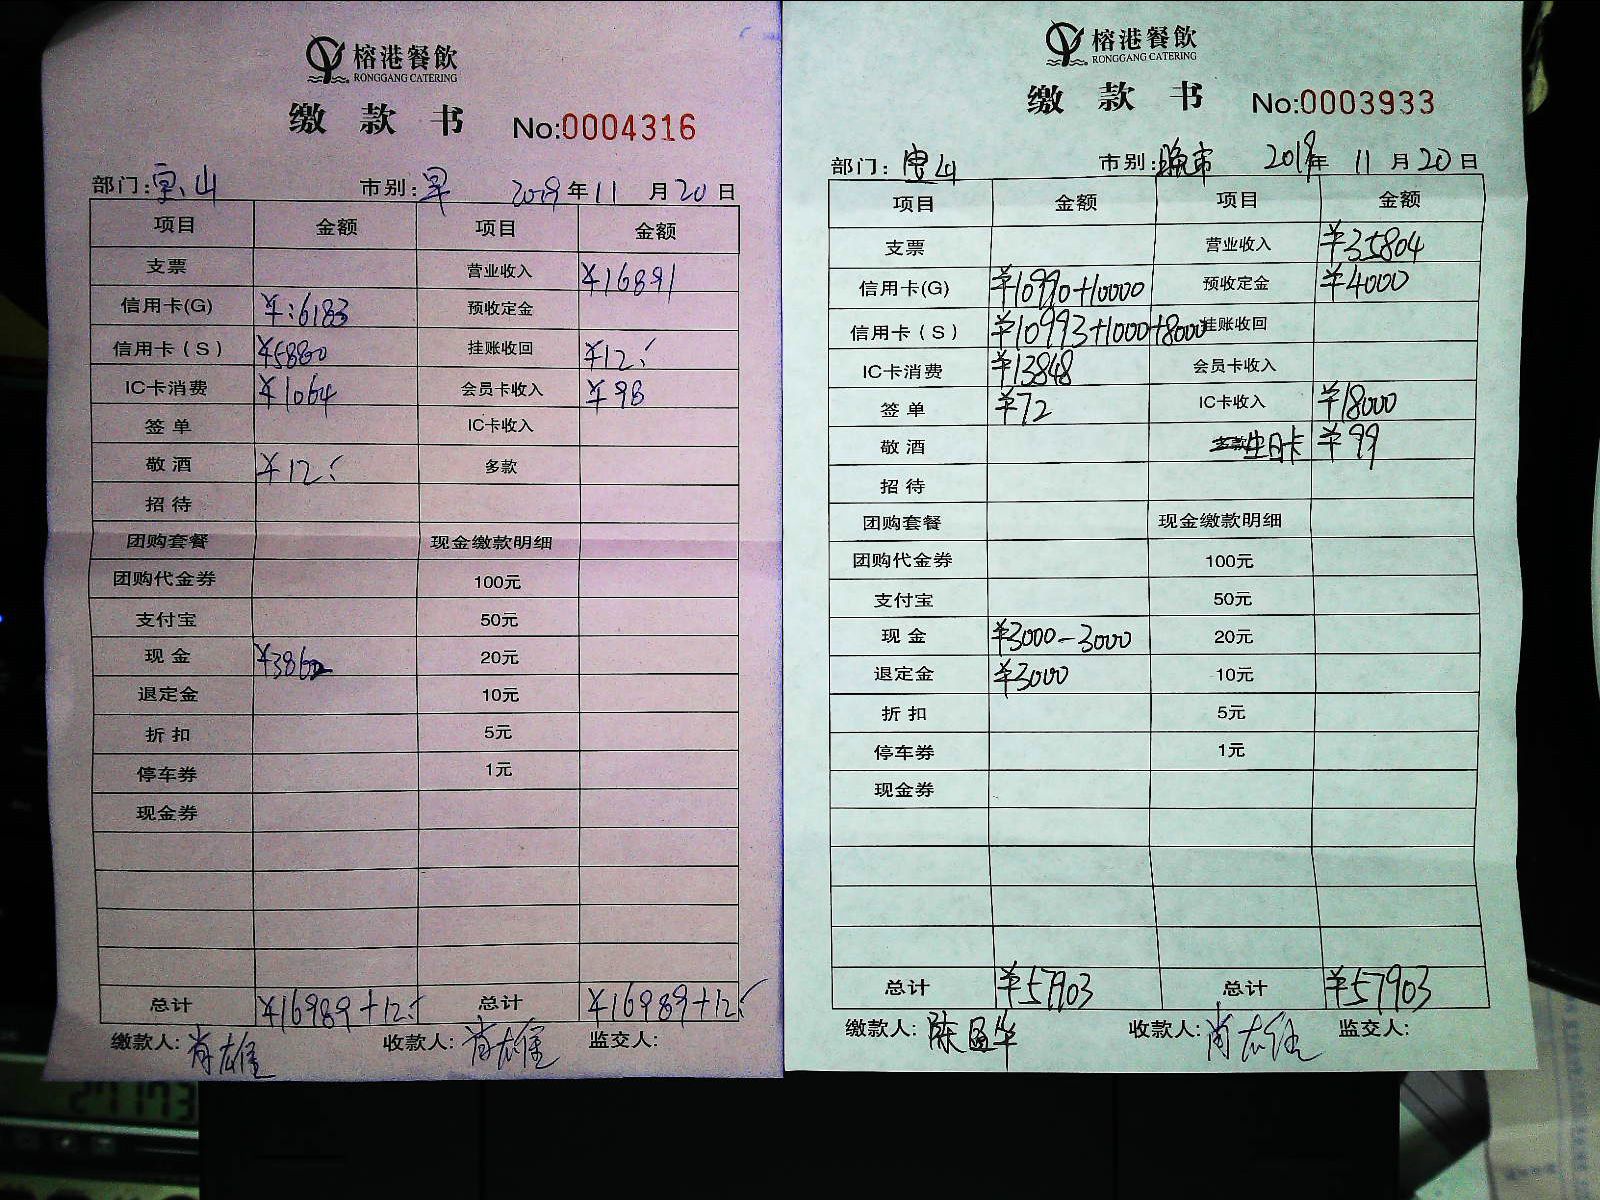 榕港餐飲
RONGGANG CATERING
缴款书 No:0004316
部门:宝山 市别:早 2019年11月20日
项目 金额 项目 金额
支票 营业收入 ¥16891
信用卡(G) ¥:6183 预收定金
信用卡(S) ¥5880 挂账收回 ¥12.
IC卡消费 ¥1064 会员卡收入 ¥98
签单 IC卡收入
敬酒 ¥12. 多款
招待
团购套餐 现金缴款明细
团购代金券 100元
支付宝 50元
现金 ¥3862 20元
退定金 10元
折扣 5元
停车券 1元
现金券
总计 ¥16989+12. 总计 ¥16989+12.
缴款人: 肖雄 收款人: 肖雄 监交人:
榕港餐飲
RONGGANG CATERING
缴款书 No:0003933
部门:宝山 市别:晚市 2019年11月20日
项目 金额 项目 金额
支票 营业收入 ¥35804
信用卡(G) ¥10990+10000 预收定金 ¥4000
信用卡(S) ¥10993+1000+8000 挂账收回
IC卡消费 ¥13848 会员卡收入
签单 ¥72 IC卡收入 ¥18000
敬酒 生日卡 ¥99
招待
团购套餐 现金缴款明细
团购代金券 100元
支付宝 50元
现金 ¥3000-3000 20元
退定金 ¥3000 10元
折扣 5元
停车券 1元
现金券
总计 ¥57903 总计 ¥57903
缴款人: 收款人: 监交人: